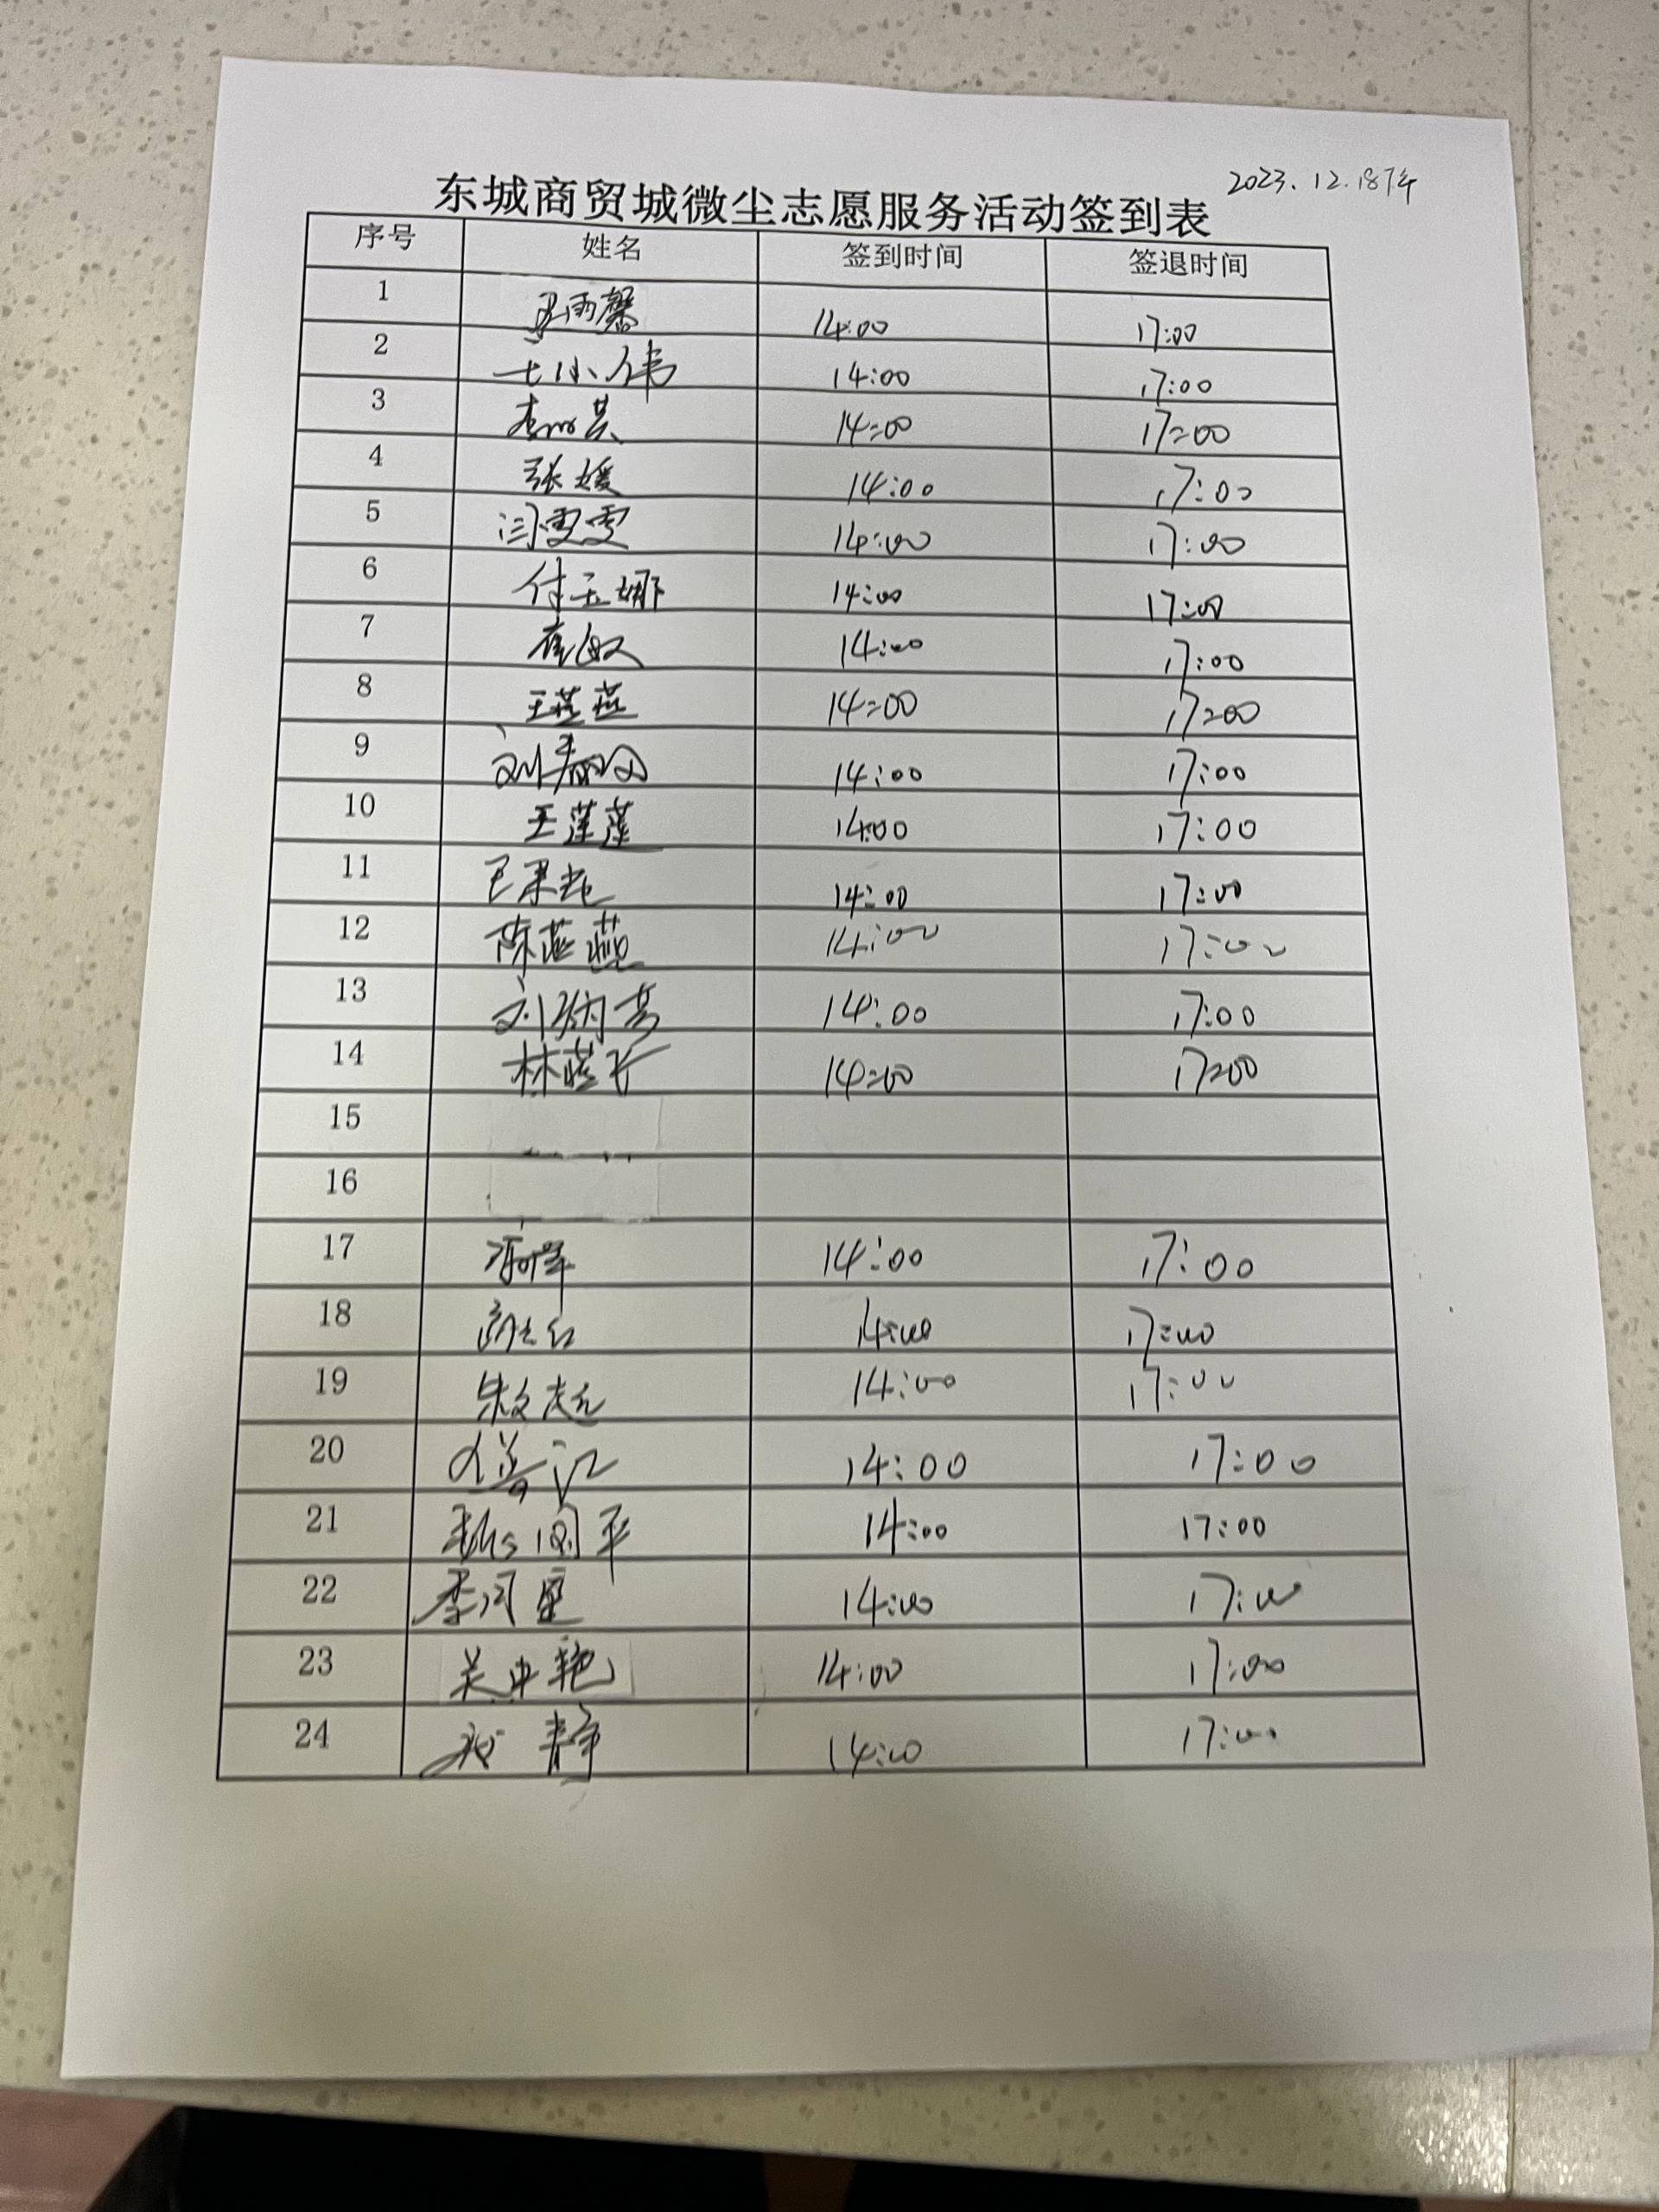 2023.12.18下午
东城商贸城微尘志愿服务活动签到表
序号 姓名 签到时间 签退时间
1 14:00 17:00
2 14:00 17:00
3 14:00 17:00
4 张媛 14:00 17:00
5 闫雯雯 14:00 17:00
6 付玉娜 14:00 17:00
7 崔敏 14:00 17:00
8 王燕燕 14:00 17:00
9 14:00 17:00
10 王莲莲 14:00 17:00
11 14:00 17:00
12 陈燕燕 14:00 17:00
13 14:00 17:00
14 14:00 17:00
15
16
17 14:00 17:00
18 14:00 17:00
19 14:00 17:00
20 14:00 17:00
21 14:00 17:00
22 14:00 17:00
23 14:00 17:00
24 14:00 17:00